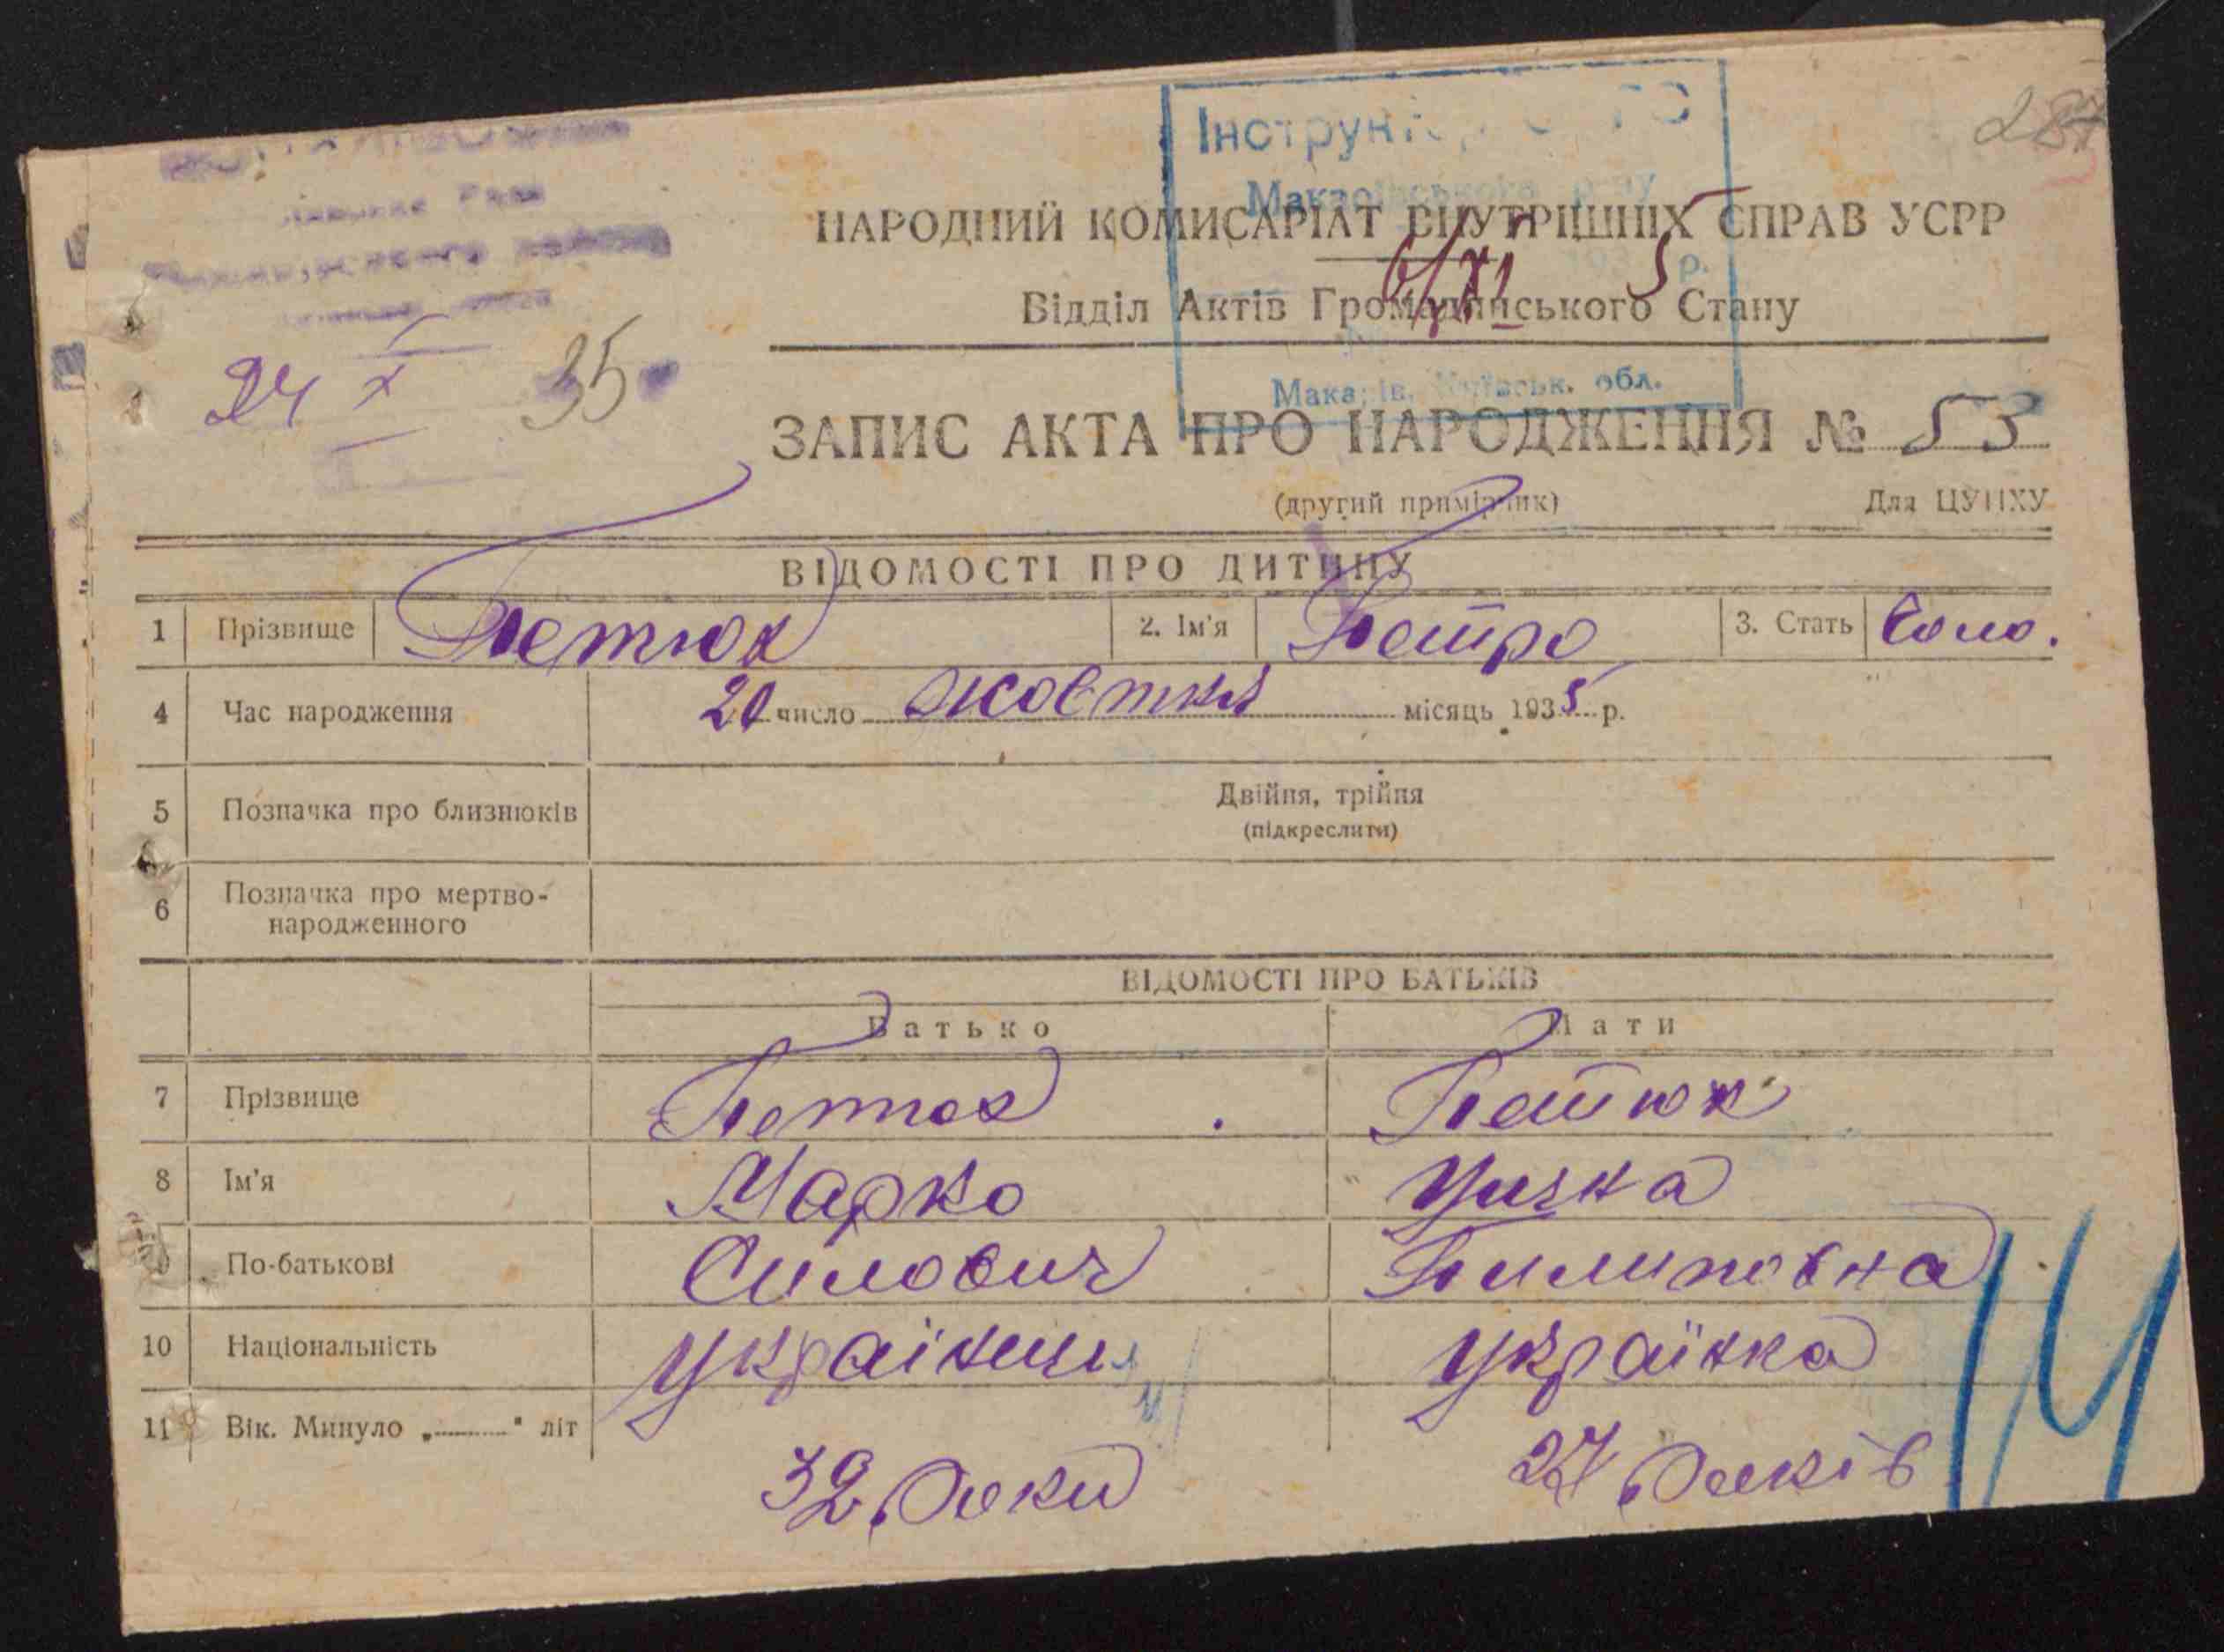 287
Інструк
Мака
НАРОДНИЙ КОМИСАРІАТ ВНУТРІШНІХ СПРАВ УСРР
6/XI 1935 р.
Відділ Актів Громадянського Стану
24 X 35
Макарів, Київськ. обл.
ЗАПИС АКТА ПРО НАРОДЖЕННЯ № 53
(другий примірник) Для ЦУНХУ
ВІДОМОСТІ ПРО ДИТИНУ
1 Прізвище Петюк 2. Ім'я Петро 3. Стать Чоло.
4 Час народження 20 число жовтня місяць 1935 р.
5 Позначка про близнюків Двійня, трійня
(підкреслити)
6 Позначка про мертво-
народженного
ВІДОМОСТІ ПРО БАТЬКІВ
Батько Мати
7 Прізвище Петюк Петюк
8 Ім'я Марко
9 По-батькові Силович Пилиповна
10 Національність Українець Українка
11 Вік. Минуло „ " літ
32 Роки 27 Років
14